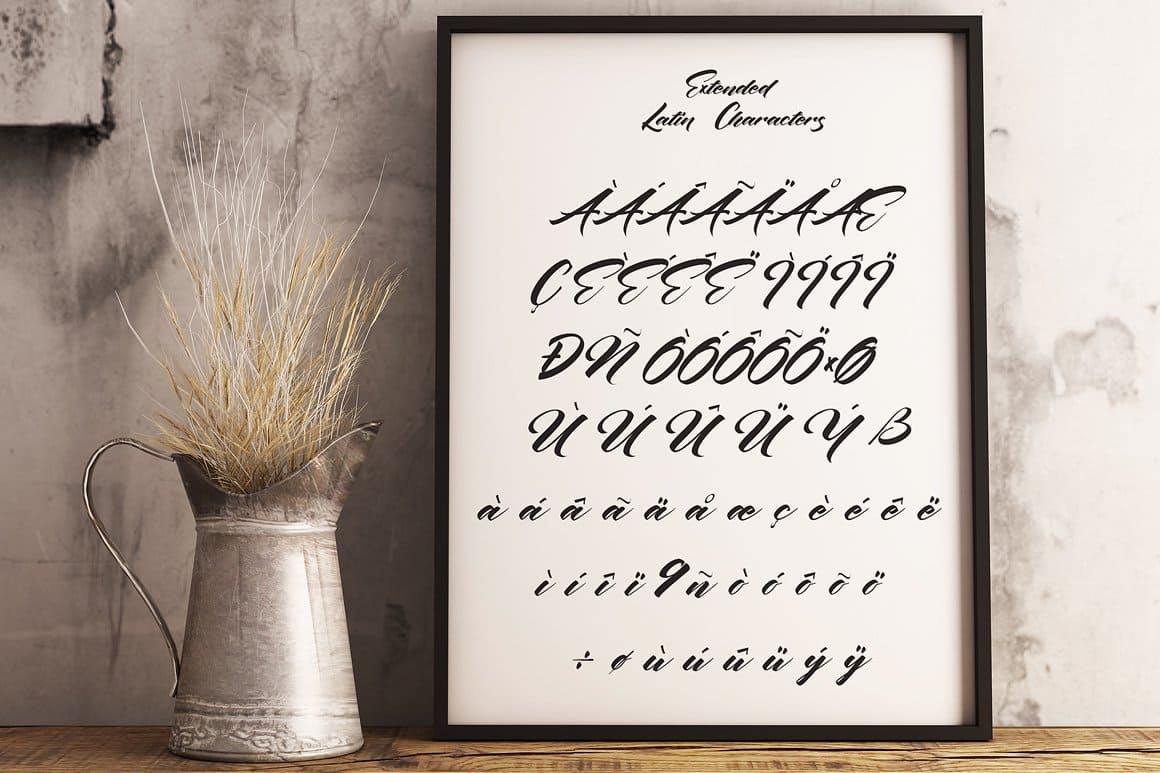 Extended
Latin Characters
ÀÁÂÃÄÅÆ
ÇÈÉÊË ÌÍÎÏ
ÐÑ ÒÓÔÕÖ×Ø
Ù Ú Û Ü Ý ß
à á â ã ä å æ ç è é ê ë
ì í î ï 9 ñ ò ó ô õ ö
÷ ø ù ú û ü ý ÿ